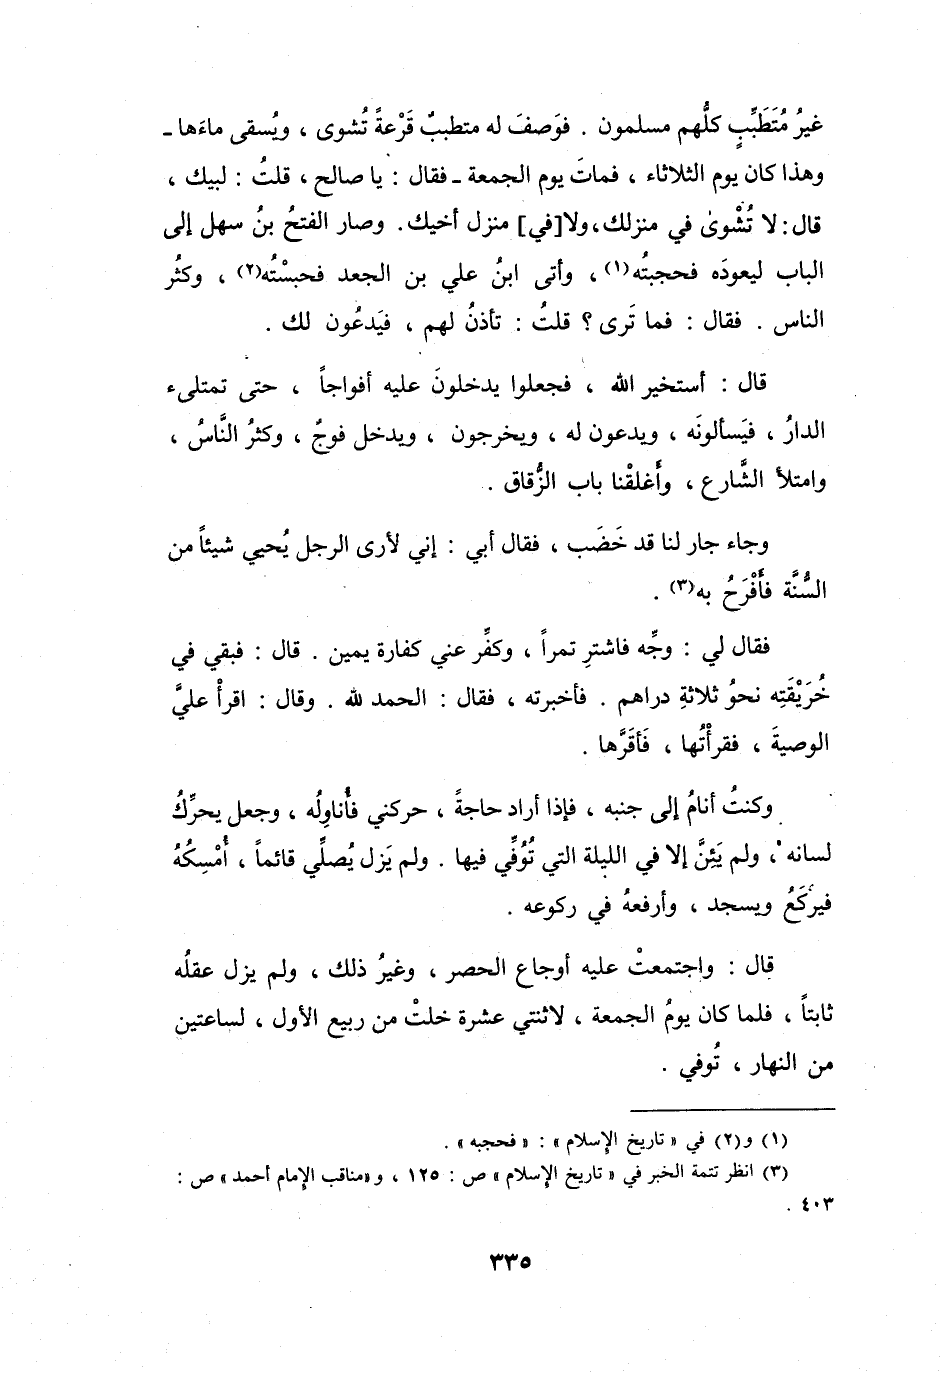 غيرُ مُتَطَبِّبٍ كلُّهم مسلمون . فوَصفَ له متطببٌ قَرْعةً تُشوى ، ويُسقى ماءَها ـ
وهذا كان يوم الثلاثاء ، فماتَ يوم الجمعة ـ فقال : يا صالح ، قلتُ : لبيك ،
قال : لا تُشْوىٰ في منزلك ، ولا [في] منزل أخيك . وصار الفتحُ بنُ سهل إلى
الباب ليعودَه فحجبتُه(١) ، وأتى ابنُ علي بن الجعد فحبسْتُه(٢) ، وكثُر
الناس . فقال : فما تَرى ؟ قلتُ : تأذنُ لهم ، فيَدعُون لك .
قال : أستخير الله ، فجعلوا يدخلونَ عليه أفواجاً ، حتى تمتلىء
الدارُ ، فيَسألونَه ، ويدعون له ، ويخرجون ، ويدخل فوجٌ ، وكثرُ النَّاسُ ،
وامتلأ الشَّارع ، وأَغلقْنا باب الزُّقاق .
وجاء جار لنا قد خَضَب ، فقال أبي : إني لأرى الرجل يُحيي شيئاً من
السُّنَّة فأَفْرَحُ به(٣) .
فقال لي : وجِّه فاشترِ تمراً ، وكفِّر عني كفارة يمين . قال : فبقي في
خُرَيْقَتِه نحوُ ثلاثةِ دراهم . فأخبرته ، فقال : الحمد لله . وقال : اقرأْ عليَّ
الوصيةَ ، فقرأْتُها ، فَأقَرَّها .
وكنتُ أنامُ إلى جنبه ، فإذا أراد حاجةً ، حركني فأُناوِلُه ، وجعل يحرِّكُ
لسانه ، ولم يَئِنَّ إلا في الليلة التي تُوُفِّي فيها . ولم يَزل يُصلِّي قائماً ، أُمْسِكُهُ
فيركَعُ ويسجد ، وأرفعهُ في ركوعه .
قال : واجتمعتْ عليه أوجاع الحصر ، وغيرُ ذلك ، ولم يزل عقلُه
ثابتاً ، فلما كان يومُ الجمعة ، لاثنتي عشرة خلتْ من ربيع الأول ، لساعتين
من النهار ، تُوفي .
(١) و(٢) في « تاريخ الإسلام » : « فحجبه » .
(٣) انظر تتمة الخبر في « تاريخ الإسلام » ص : ١٢٥ ، و«مناقب الإمام أحمد » ص :
٤٠٣ .
٣٣٥